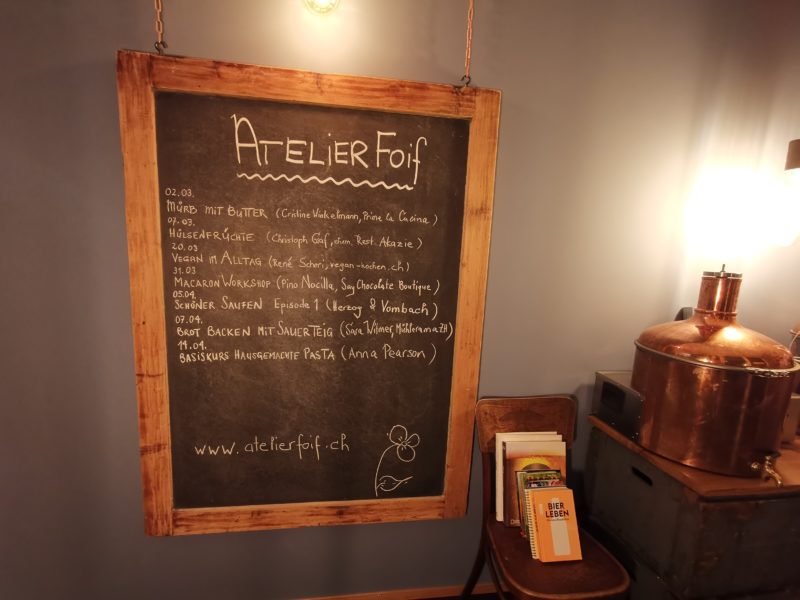 ATELIER FOIF
02.03.
MÜRB MIT BUTTER (Cristine Winkelmann, Prima la Cucina)
07.03.
HÜLSENFRÜCHTE (Christoph Graf, ehem. Rest. Akazie)
20.03
VEGAN IM ALLTAG (René Schori, vegan-kochen.ch)
31.03
MACARON WORKSHOP (Pino Nocilla, Say Chocolate Boutique)
05.04.
SCHÖNER SAUFEN Episode 1 (Herzog & Vombach)
07.04.
BROT BACKEN MIT SAUERTEIG (Sara Wilmer, ZH)
14.04.
BASISKURS HAUSGEMACHTE PASTA (Anna Pearson)
www.atelierfoif.ch
BIER
LEBEN